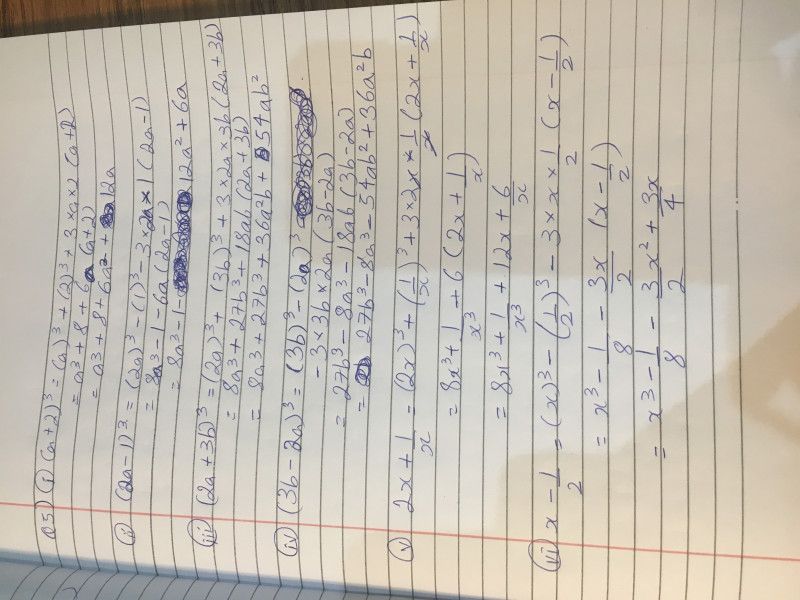 Q5) (i) (a+2)³ = (a)³ + (2)³ + 3×a×2 (a+2)
= a³ + 8 + 6a (a+2)
= a³ + 8 + 6a² + 12a
(ii) (2a-1)³ = (2a)³ - (1)³ - 3×2a×1 (2a-1)
= 8a³ - 1 - 6a (2a-1)
= 8a³ - 1 - 12a² + 6a
(iii) (2a+3b)³ = (2a)³ + (3b)³ + 3×2a×3b (2a+3b)
= 8a³ + 27b³ + 18ab (2a+3b)
= 8a³ + 27b³ + 36a²b + 54ab²
(iv) (3b-2a)³ = (3b)³ - (2a)³
- 3×3b×2a (3b-2a)
= 27b³ - 8a³ - 18ab (3b-2a)
= 27b³ - 8a³ - 54ab² + 36a²b
(v) 2x + 1/x = (2x)³ + (1/x)³ + 3×2x×1/x (2x + 1/x)
= 8x³ + 1/x³ + 6 (2x + 1/x)
= 8x³ + 1/x³ + 12x + 6/x
(vi) x - 1/2 = (x)³ - (1/2)³ - 3×x×1/2 (x - 1/2)
= x³ - 1/8 - 3x/2 (x - 1/2)
= x³ - 1/8 - 3x²/2 + 3x/4